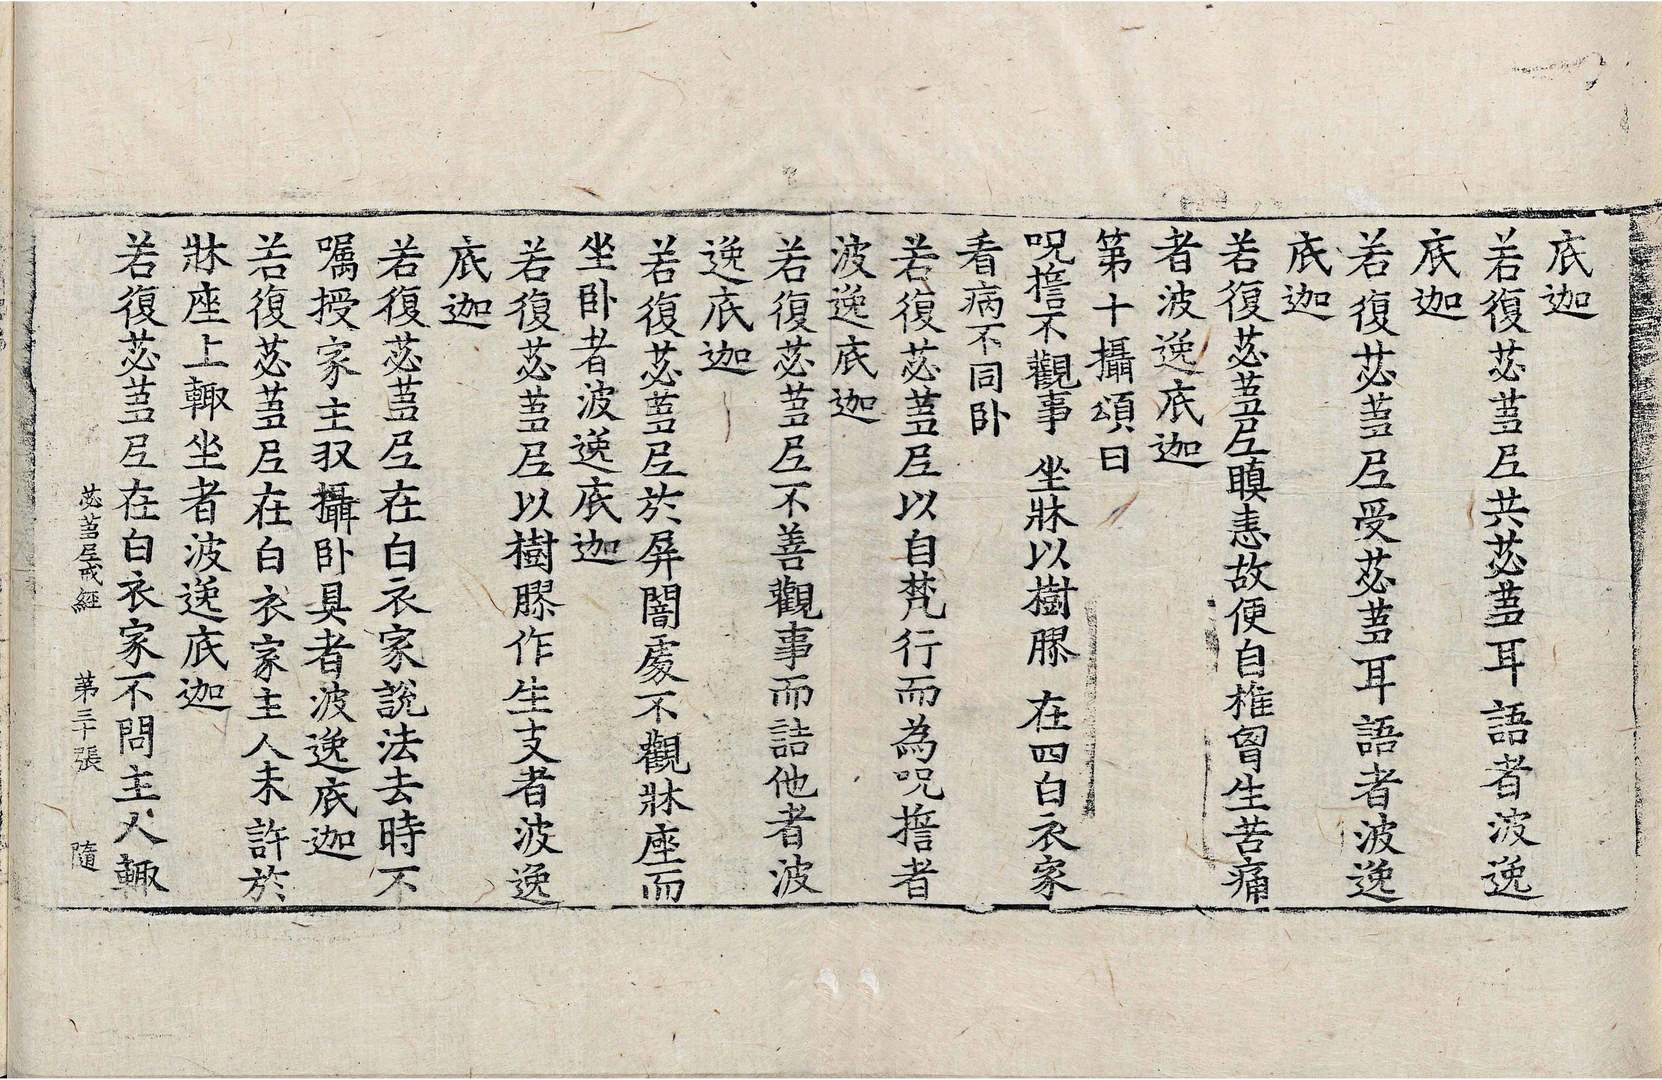 底迦
若復苾蒭尼共苾蒭耳語者波逸
底迦
若復苾蒭尼受苾蒭耳語者波逸
底迦
若復苾蒭尼瞋恚故便自椎胷生苦痛
者波逸底迦
第十攝頌曰
呪擔不觀事 坐牀以樹膠 在四白衣家
看病不同卧
若復苾蒭尼以自梵行而為呪擔者
波逸底迦
若復苾蒭尼不善觀事而詰他者波
逸底迦
若復苾蒭尼於屏闇處不觀牀座而
坐卧者波逸底迦
若復苾蒭尼以樹膠作生支者波逸
底迦
若復苾蒭尼在白衣家說法去時不
囑授家主収攝卧具者波逸底迦
若復苾蒭尼在白衣家主人未許於
牀座上輙坐者波逸底迦
若復苾蒭尼在白衣家不問主人輙
苾蒭尼戒經 第三十張 隨